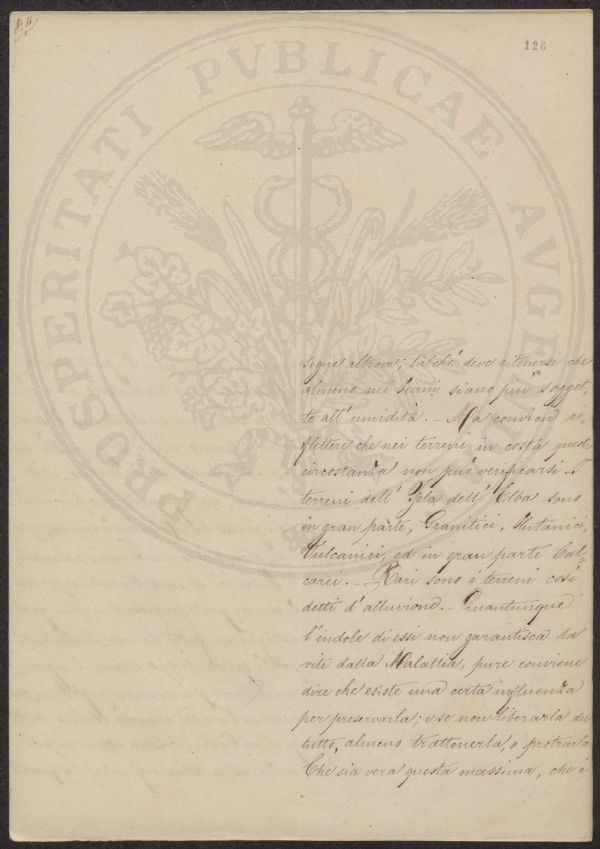 126
PROSPERITATI PVBLICAE AVGE
segue altrove; talchè deve ritenersi che
almeno nei Piani siano più sogget-
te all' umidità. - Ma conviene re-
flettere che nei terreni in costà questa
circostanza non può verificarsi. I
terreni dell' Isola dell' Elba sono
in gran parte, Granitici, Plutonici,
Vulcanici, ed in gran parte Cal-
carei. - Rari sono i terreni così
detti d'alluvione. - Quantunque
l'indole di essi non garantisca la
vite dalla Malattia, pure conviene
dire che esiste una certa influenza
per preservarla; e se non liberarla del
tutto, almeno trattenerla, o protrarla
Che sia vera questa massima, che i